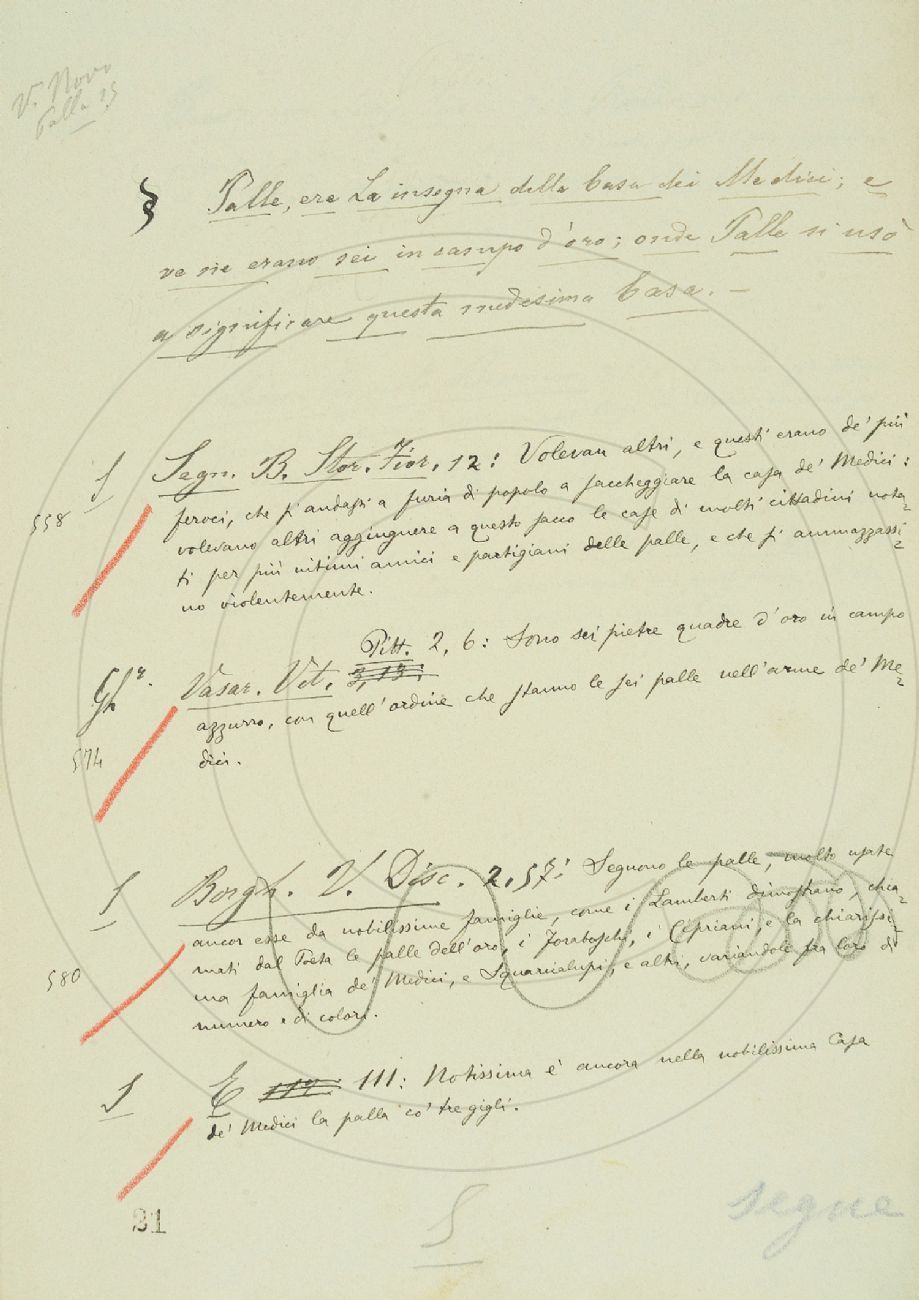 V. Novo
Palla 25
§ Palle, era La insegna della Casa dei Medici; e
ve ne erano sei in campo d'oro; onde Palle si usò
a significare questa medesima Casa. –
S Segn. B. Stor. Fior. 12: Volevan altri, e questi erano de' più
558 feroci, che si andassi a furia di popolo a saccheggiare la casa de' Medici:
volevano altri aggiugnere a questo sacco le case di molti cittadini nota=
ti per più intimi amici e partigiani delle palle, e che si ammazzassi=
no violentemente.
Pitt. 2, 6: Sono sei pietre quadre d'oro in campo
Gh.r Vasar. Vit.
azzurro, con quell'ordine che stanno le sei palle nell'arme de' Me=
574 dici.
S Borgh. V. Disc. 2, 57: Seguono le palle, molto usate
ancor esse da nobilissime famiglie, come i Lamberti dimostrano, chia=
mati dal Poeta le palle dell'oro, i Foraboschi, i Cepriani, e la chiarissi=
580 ma famiglia de' Medici, e Squarcialupi, e altri, variandole fra loro di
numero e di colori.
S E 111: Notissima è ancora nella nobilissima Casa
de' Medici la palla co' tre gigli.
S
segue
21